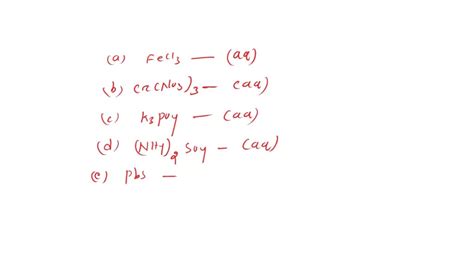 (a) FeCl3 — (aq)
(b) Cr(NO3)3 — (aq)
(c) K3PO4 — (aq)
(d) (NH4)2 SO4 — (aq)
(e) PbS —